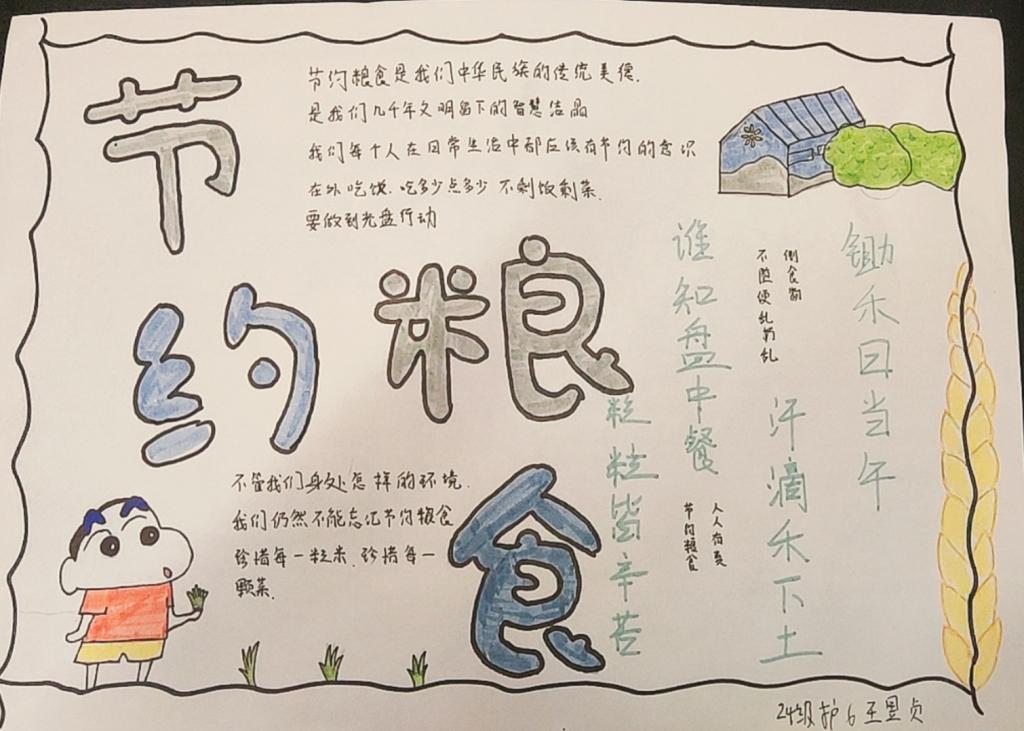 节约粮食
节约粮食是我们中华民族的传统美德.
是我们几千年文明留下的智慧结晶
我们每个人在日常生活中都应该有节约的意识
在外吃饭.吃多少点多少 不剩饭剩菜.
要做到光盘行动
锄禾日当午
汗滴禾下土
谁知盘中餐
粒粒皆辛苦
倒食物
不随便乱扔乱
人人有责
节约粮食
不管我们身处怎样的环境.
我们仍然不能忘记节约粮食
珍惜每一粒米.珍惜每一
颗菜.
24级护6王昱贞